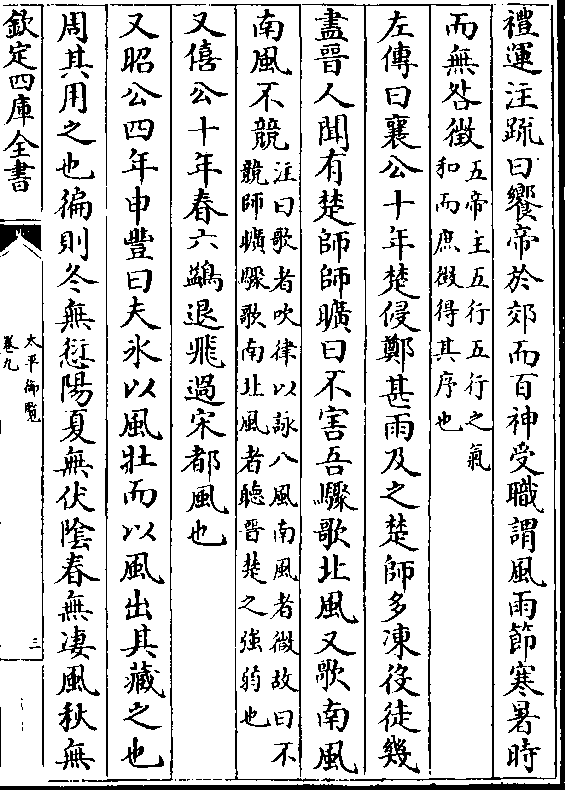 禮運注疏曰饗帝於郊而百神受職謂風雨節寒暑時
而無咎徵五帝主五行五行之氣
和而庶徵得其序也
左傳曰襄公十年楚侵鄭甚雨及之楚師多凍役徒幾
盡晉人聞有楚師師曠曰不害吾驟歌北風又歌南風
南風不競注曰歌者吹律以詠八風南風者微故曰不
競師曠驟歌南北風者聽晉楚之強弱也
又僖公十年春六鷁退飛過宋都風也
又昭公四年申豐曰夫氷以風壯而以風出其藏之也
周其用之也徧則冬無愆陽夏無伏陰春無凄風秋無
欽定四庫全書
太平御覽
卷九
三